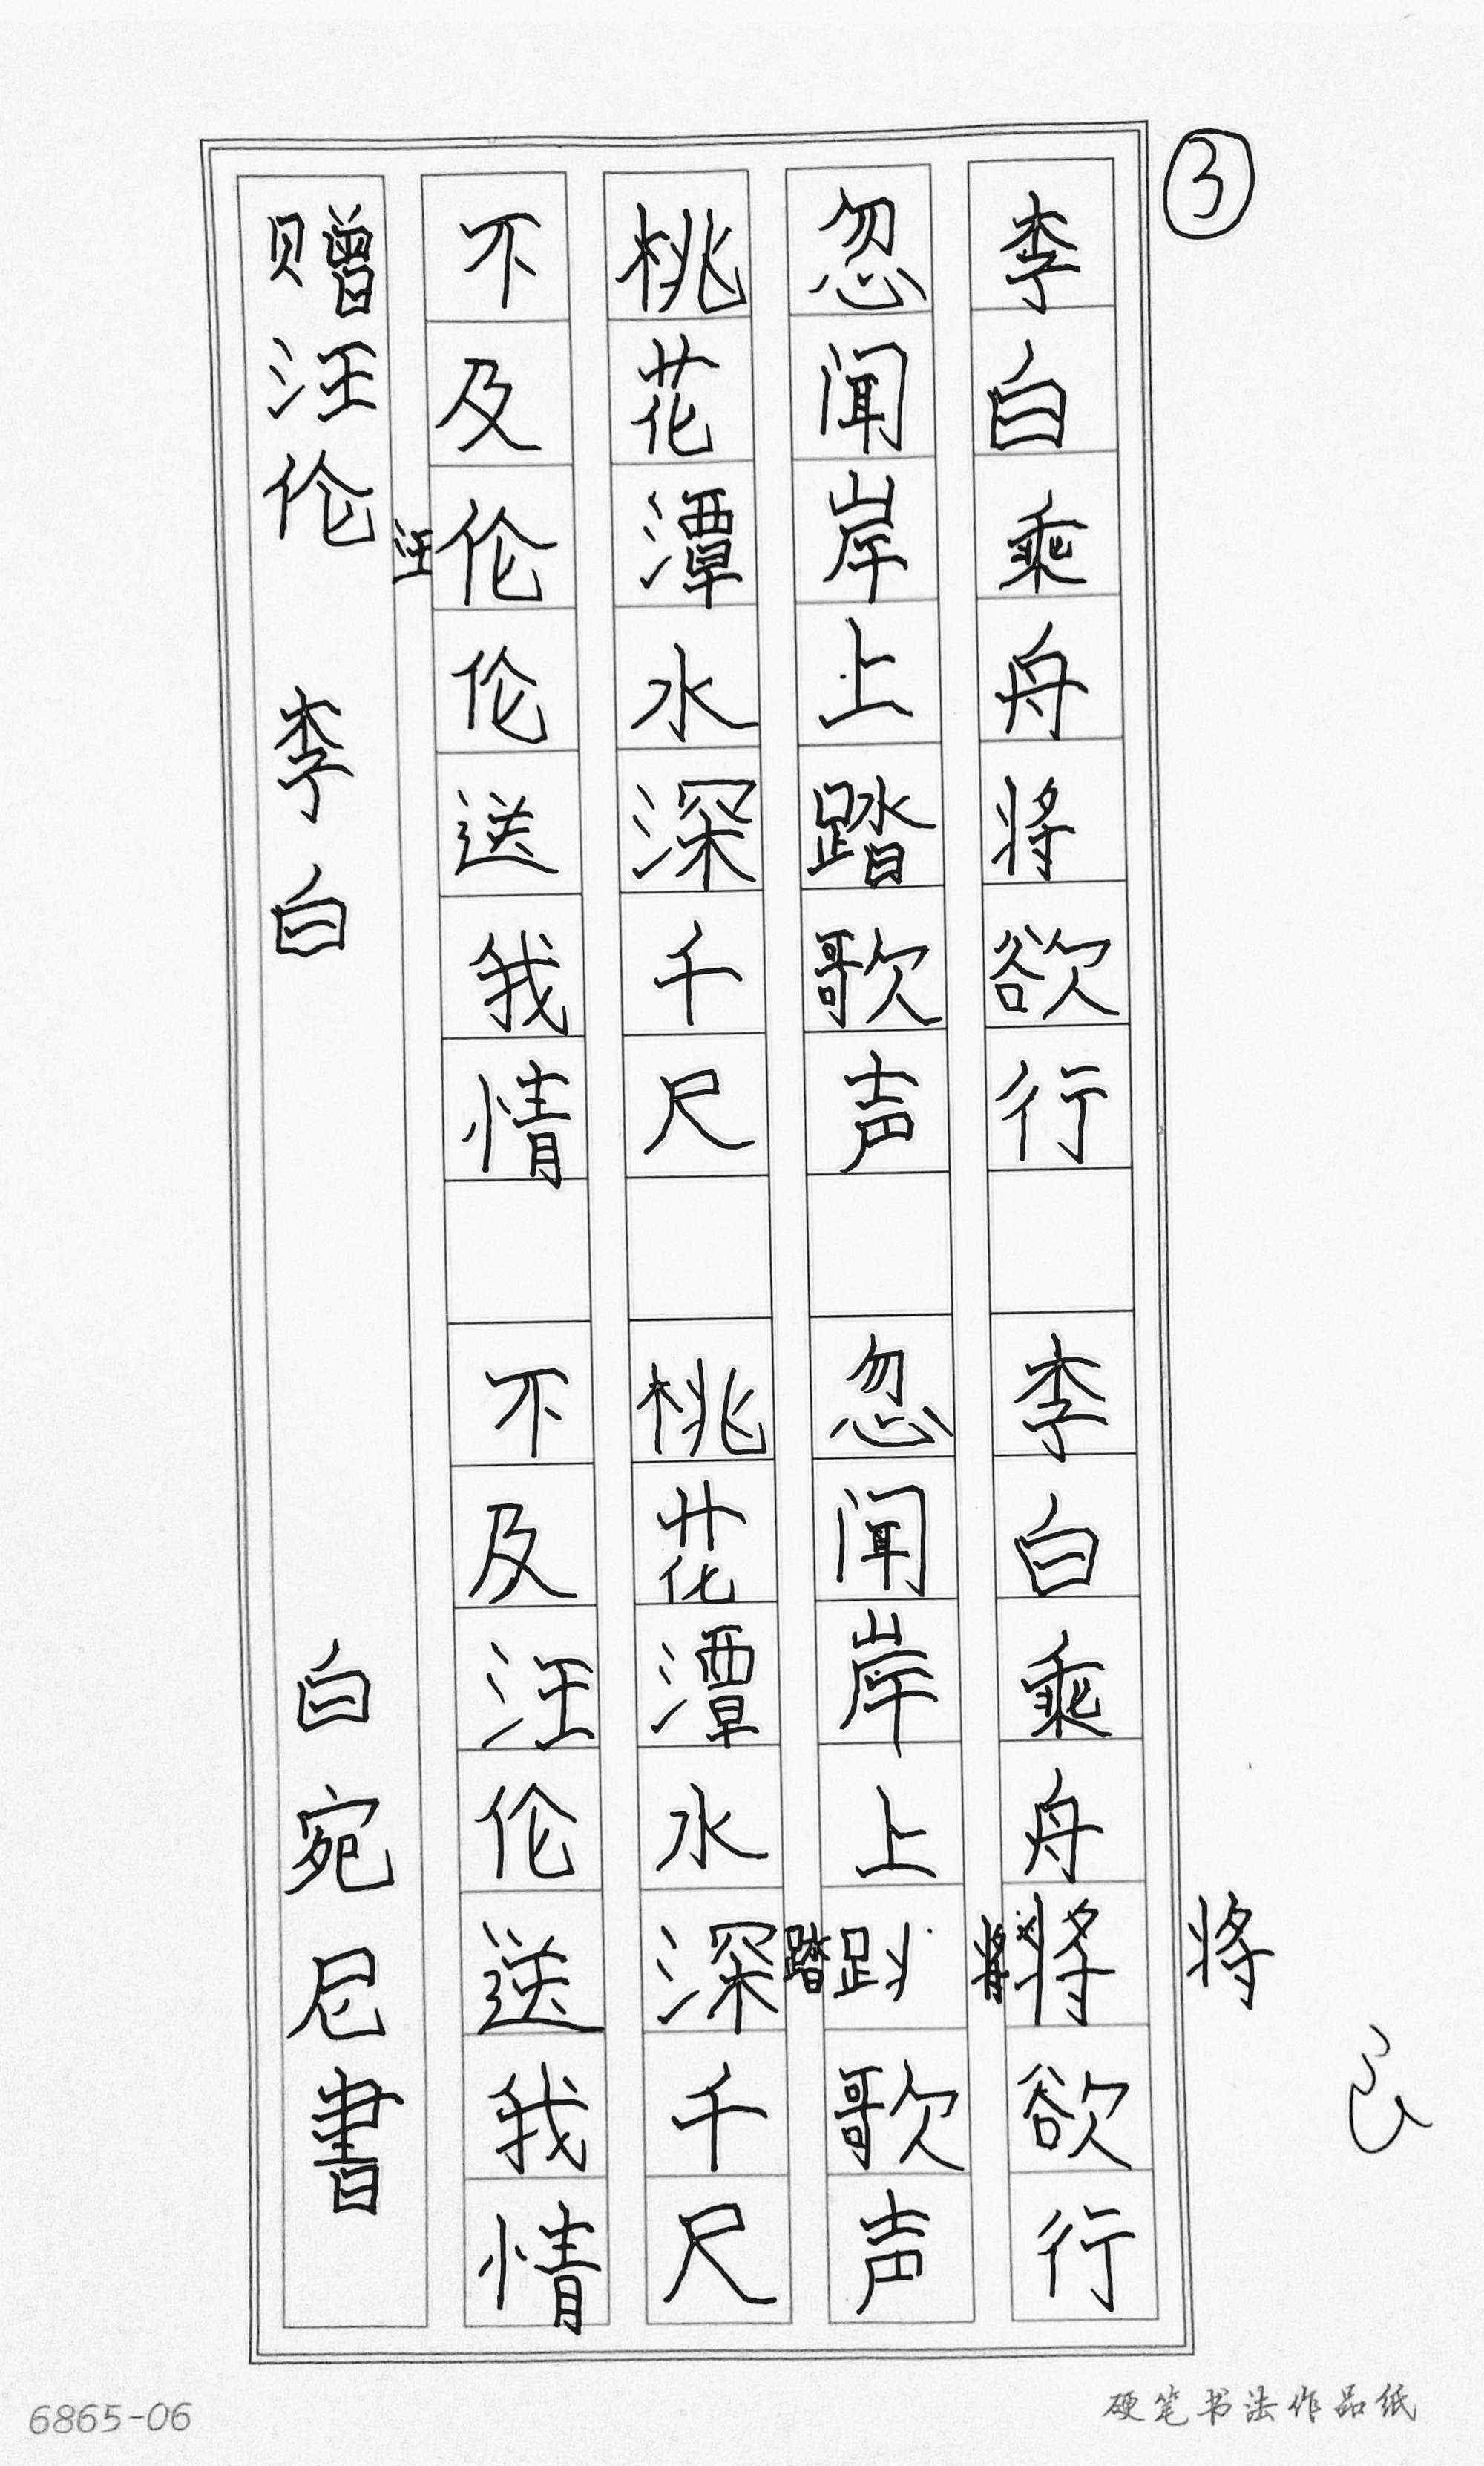 ③
李白乘舟将欲行 李白乘舟将欲行
将
将
忽闻岸上踏歌声 忽闻岸上歌声
踏
桃花潭水深千尺 桃花潭水深千尺
不及伦伦送我情 不及汪伦送我情
汪
赠汪伦 李白 白宛尼書
6865-06
硬笔书法作品纸